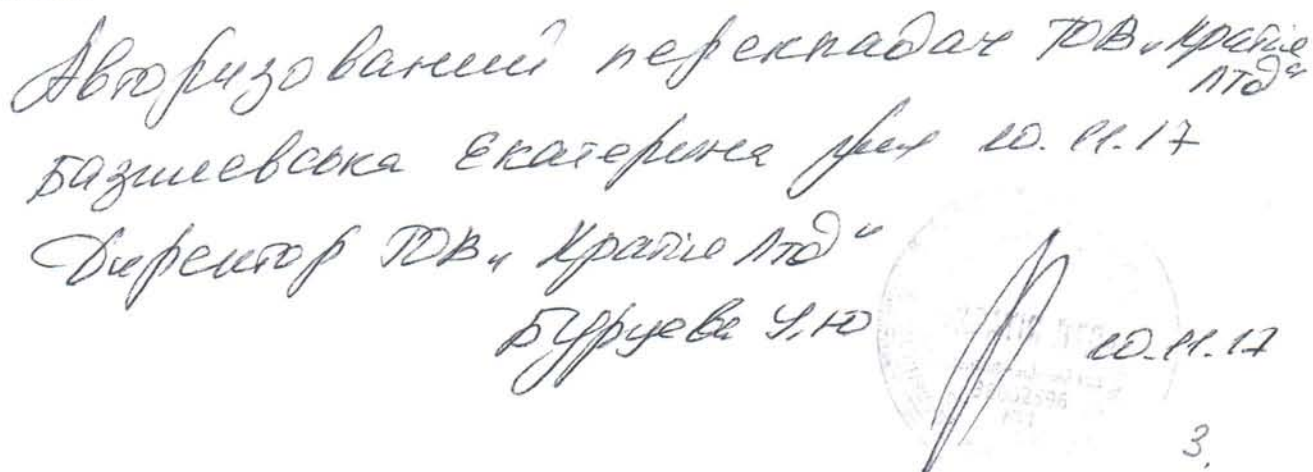 Авторизований перекладач ТОВ „Кратіє
ЛТД“
Базилевська Екатерина 10.11.17
Директор ТОВ „Кратіє Лтд“
Буруєва Ю
10.11.17
3.